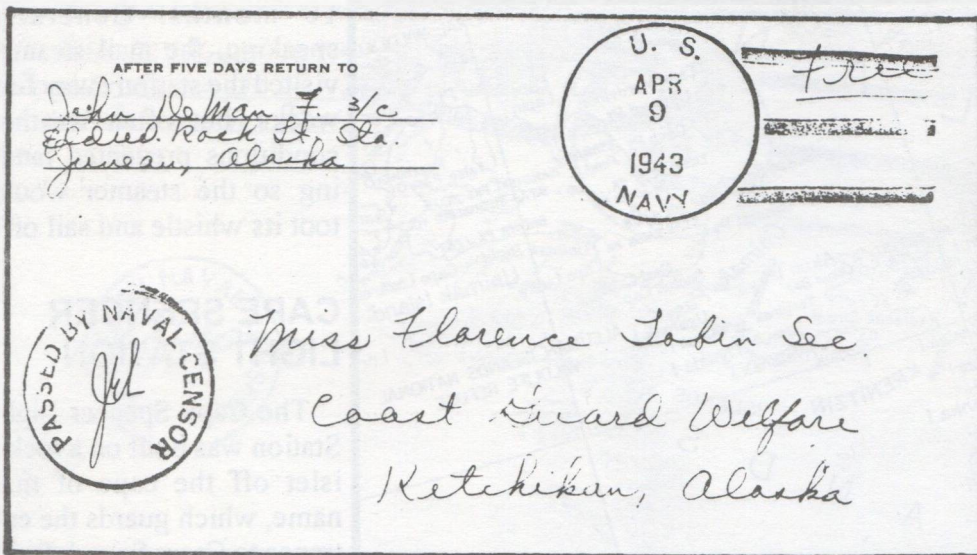 AFTER FIVE DAYS RETURN TO
John De Mar, F 3/c
Eldred Rock Lt. Sta.
Juneau, Alaska
U. S.
APR
9
1943
NAVY
Free
PASSED BY NAVAL CENSOR
Miss Florence Tobin Sec.
Coast Guard Welfare
Ketchikan, Alaska